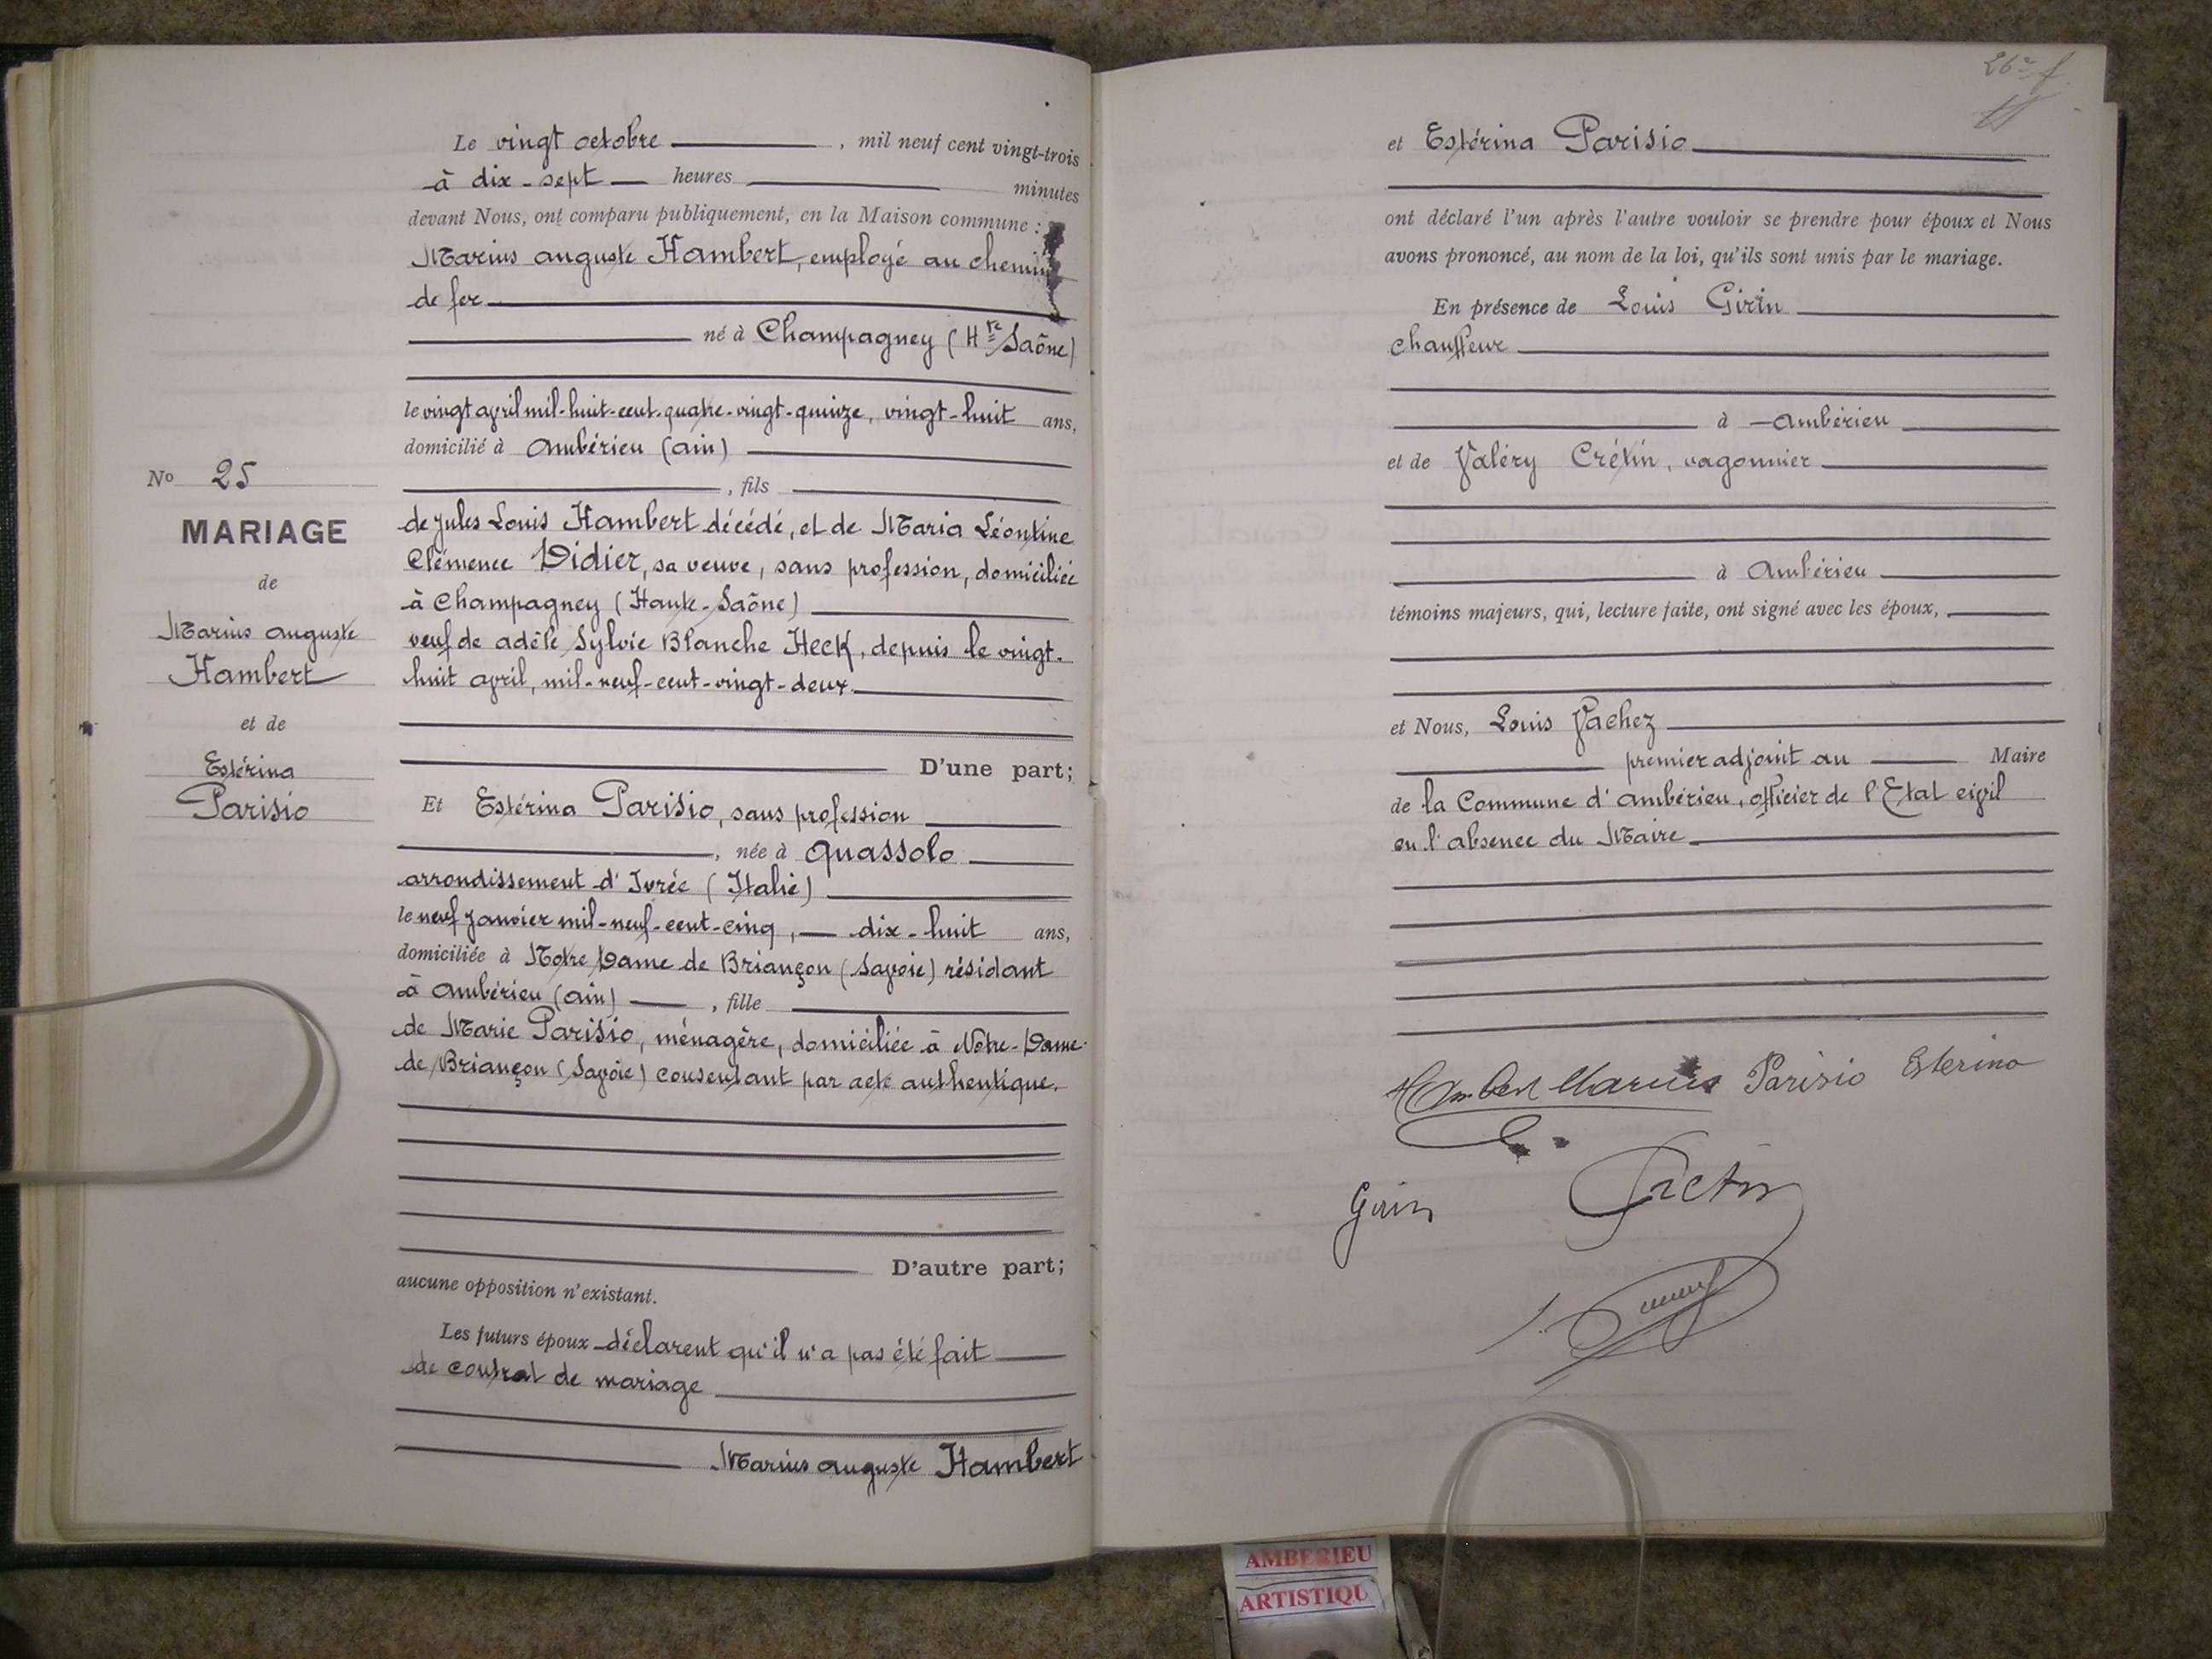 Le vingt octobre , mil neuf cent vingt-trois
à dix-sept heures minutes
devant Nous, ont comparu publiquement, en la Maison commune :
Marius auguste Hambert, employé au chemin
de fer
né à Champagney (Hte Saône)
le vingt avril mil-huit-cent-quatre-vingt-quinze, vingt-huit ans,
domicilié à Ambérieu (ain)
, fils
de Jules Louis Hambert décédé, et de Maria Léontine
Clémence Didier, sa veuve, sans profession, domiciliée
à Champagney (Haute-Saône)
veuf de adèle Sylvie Blanche Heck, depuis le vingt-
huit avril, mil-neuf-cent-vingt-deux.
D'une part;
No 25
MARIAGE
de
Marius auguste
Hambert
et de
Estérina
Parisio
Et Estérina Parisio, sans profession
, née à quassolo
arrondissement d'Ivrée (Italie)
le neuf janvier mil-neuf-cent-cinq, dix-huit ans,
domiciliée à Notre Dame de Briançon (Savoie) résidant
à Ambérieu (ain) , fille
de Marie Parisio, ménagère, domiciliée à Notre-Dame-
de Briançon (Savoie) consentant par acte authentique.
D'autre part;
aucune opposition n'existant.
Les futurs époux déclarent qu'il n'a pas été fait
de contrat de mariage
Marius auguste Hambert
et Estérina Parisio
ont déclaré l'un après l'autre vouloir se prendre pour époux et Nous
avons prononcé, au nom de la loi, qu'ils sont unis par le mariage.
En présence de Louis Girin
chauffeur
à Ambérieu
et de Valéry Crétin, wagonnier
à Ambérieu
témoins majeurs, qui, lecture faite, ont signé avec les époux,
et Nous, Louis Vachez
premier adjoint au Maire
de la Commune d'Ambérieu, officier de l'Etat civil
en l'absence du Maire
Hambert Marius Parisio Esterina
Girin Crétin
AMBERIEU
ARTISTIQU